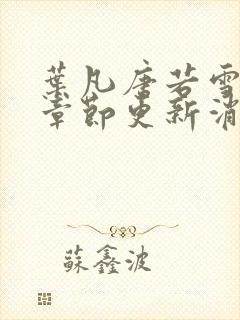 葉凡唐若雪
章節更新消
蘇鑫波